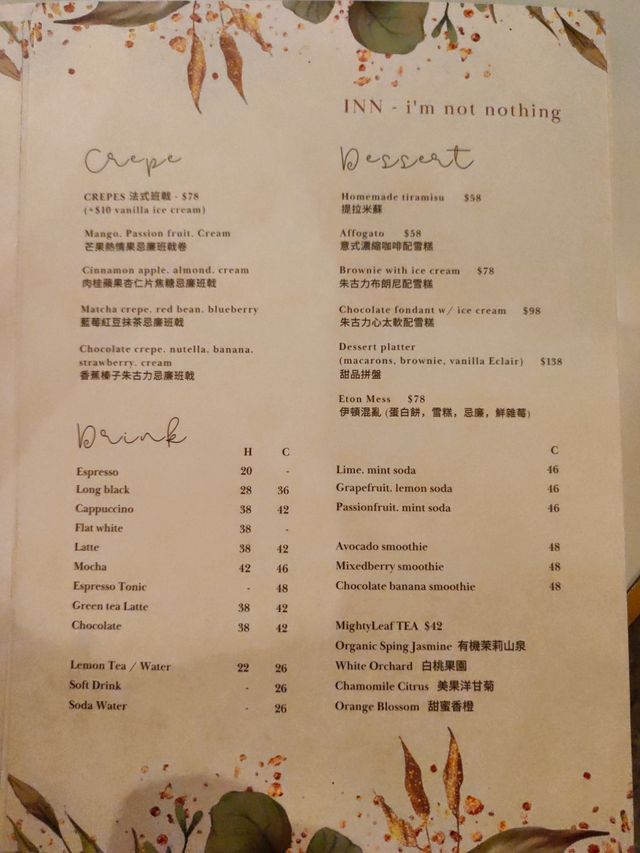 INN - i'm not nothing
Crepe
CREPES 法式班戟 - $78
(+$10 vanilla ice cream)
Mango. Passion fruit. Cream
芒果熱情果忌廉班戟卷
Cinnamon apple. almond. cream
肉桂蘋果杏仁片焦糖忌廉班戟
Matcha crepe. red bean. blueberry
藍莓紅豆抹茶忌廉班戟
Chocolate crepe. nutella. banana.
strawberry. cream
香蕉榛子朱古力忌廉班戟
Dessert
Homemade tiramisu $58
提拉米蘇
Affogato $58
意式濃縮咖啡配雪糕
Brownie with ice cream $78
朱古力布朗尼配雪糕
Chocolate fondant w/ ice cream $98
朱古力心太軟配雪糕
Dessert platter
(macarons, brownie, vanilla Eclair) $138
甜品拼盤
Eton Mess $78
伊頓混亂 (蛋白餅，雪糕，忌廉，鮮雜莓)
Drink
H C
Espresso 20 -
Long black 28 36
Cappuccino 38 42
Flat white 38 -
Latte 38 42
Mocha 42 46
Espresso Tonic - 48
Green tea Latte 38 42
Chocolate 38 42
Lemon Tea / Water 22 26
Soft Drink - 26
Soda Water - 26
C
Lime. mint soda 46
Grapefruit. lemon soda 46
Passionfruit. mint soda 46
Avocado smoothie 48
Mixedberry smoothie 48
Chocolate banana smoothie 48
MightyLeaf TEA $42
Organic Sping Jasmine 有機茉莉山泉
White Orchard 白桃果園
Chamomile Citrus 美果洋甘菊
Orange Blossom 甜蜜香橙